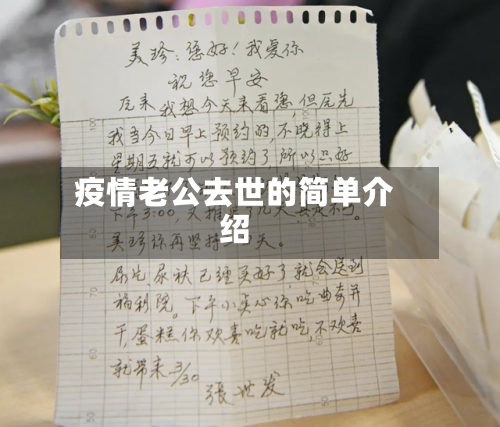 美珍：您好！我爱你
祝您早安
原来我想今天来看您但原先
我当今日早上预约的，不晓得上
星期五就可以预约了所以只好
疫情老公去世的简单介
绍
下午3:00，又推
美珍你再坚持 天。
尿片，尿袜已经买好了就会送到
福利院。下午小点心你吃曲奇并
干，蛋糕你欢喜吃就吃，不欢喜
就带来 3/30
张世发